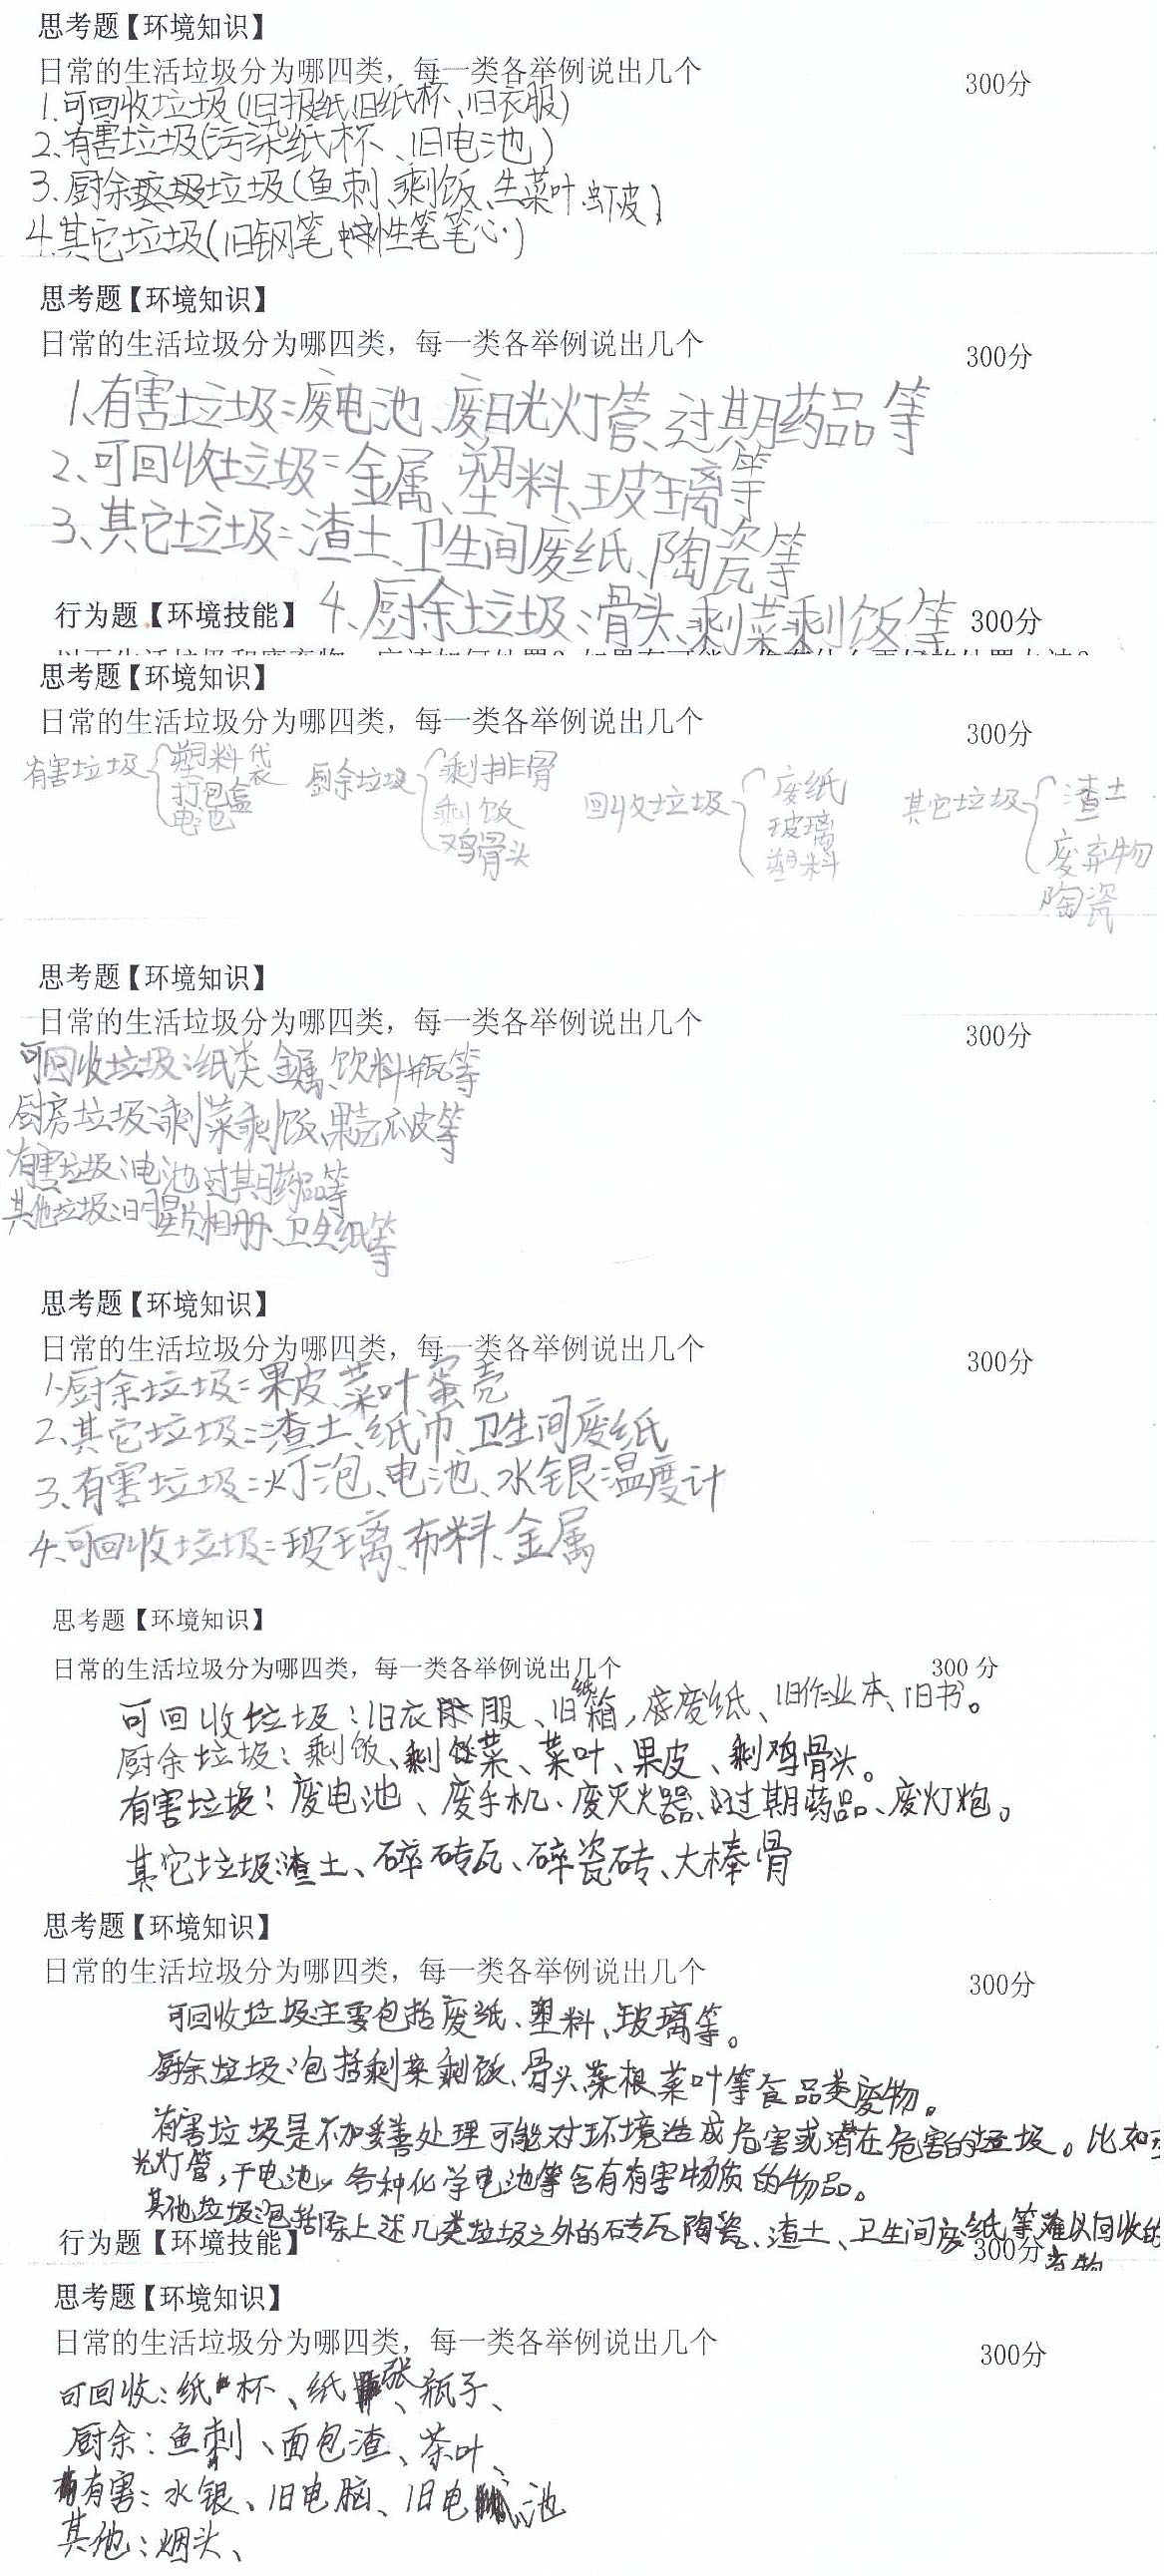 思考题【环境知识】
日常的生活垃圾分为哪四类，每一类各举例说出几个 300分
1.可回收垃圾(旧报纸、旧纸杯、旧衣服)
2、有害垃圾(污染纸杯、旧电池)
3.厨余垃圾(鱼刺、剩饭、生菜叶、虾皮)
4.其它垃圾(旧钢笔 性笔笔心)
思考题【环境知识】
日常的生活垃圾分为哪四类，每一类各举例说出几个 300分
1、有害垃圾：废电池、废日光灯管、过期药品等
2、可回收垃圾：金属、塑料、玻璃等
3、其它垃圾：渣土、卫生间废纸、陶瓷等
行为题【环境技能】 4、厨余垃圾：骨头、剩菜剩饭等 300分
思考题【环境知识】
日常的生活垃圾分为哪四类，每一类各举例说出几个 300分
有害垃圾 塑料袋 打包盒 电包
厨余垃圾 剩排骨 剩饭 鸡骨头
回收垃圾 废纸 玻璃 塑料
其它垃圾 渣土 废弃物 陶瓷
思考题【环境知识】
日常的生活垃圾分为哪四类，每一类各举例说出几个 300分
可回收垃圾：纸类、金属、饮料瓶等
厨房垃圾：剩菜剩饭、果壳瓜皮等
有害垃圾：电池、过期药品等
其他垃圾：旧明星片相册、卫生纸等
思考题【环境知识】
日常的生活垃圾分为哪四类，每一类各举例说出几个 300分
1.厨余垃圾：果皮、菜叶、蛋壳
2、其它垃圾：渣土、纸巾、卫生间废纸
3、有害垃圾：灯泡、电池、水银温度计
4、可回收垃圾：玻璃、布料、金属
思考题【环境知识】
日常的生活垃圾分为哪四类，每一类各举例说出几个 300 分
可回收垃圾：旧衣服、旧纸箱，废纸、旧作业本、旧书。
厨余垃圾：剩饭、剩菜、菜叶、果皮、剩鸡骨头。
有害垃圾：废电池、废手机、废灭火器、过期药品、废灯炮。
其它垃圾：渣土、碎砖瓦、碎瓷砖、大棒骨
思考题【环境知识】
日常的生活垃圾分为哪四类，每一类各举例说出几个 300分
可回收垃圾主要包括废纸、塑料、玻璃等。
厨余垃圾：包括剩菜剩饭、骨头菜根菜叶等食品类废物。
有害垃圾是不加妥善处理可能对环境造成危害或潜在危害的垃圾。比如
光灯管，干电池，各种化学电池等含有有害物质的物品。
其他垃圾包括除上述几类垃圾之外的砖瓦陶瓷、渣土、卫生间废纸等难以回收的
行为题【环境技能】 300分
思考题【环境知识】
日常的生活垃圾分为哪四类，每一类各举例说出几个 300分
可回收：纸杯、纸张、瓶子、
厨余：鱼刺、面包渣、茶叶、
有害：水银、旧电脑、旧电池
其他：烟头、